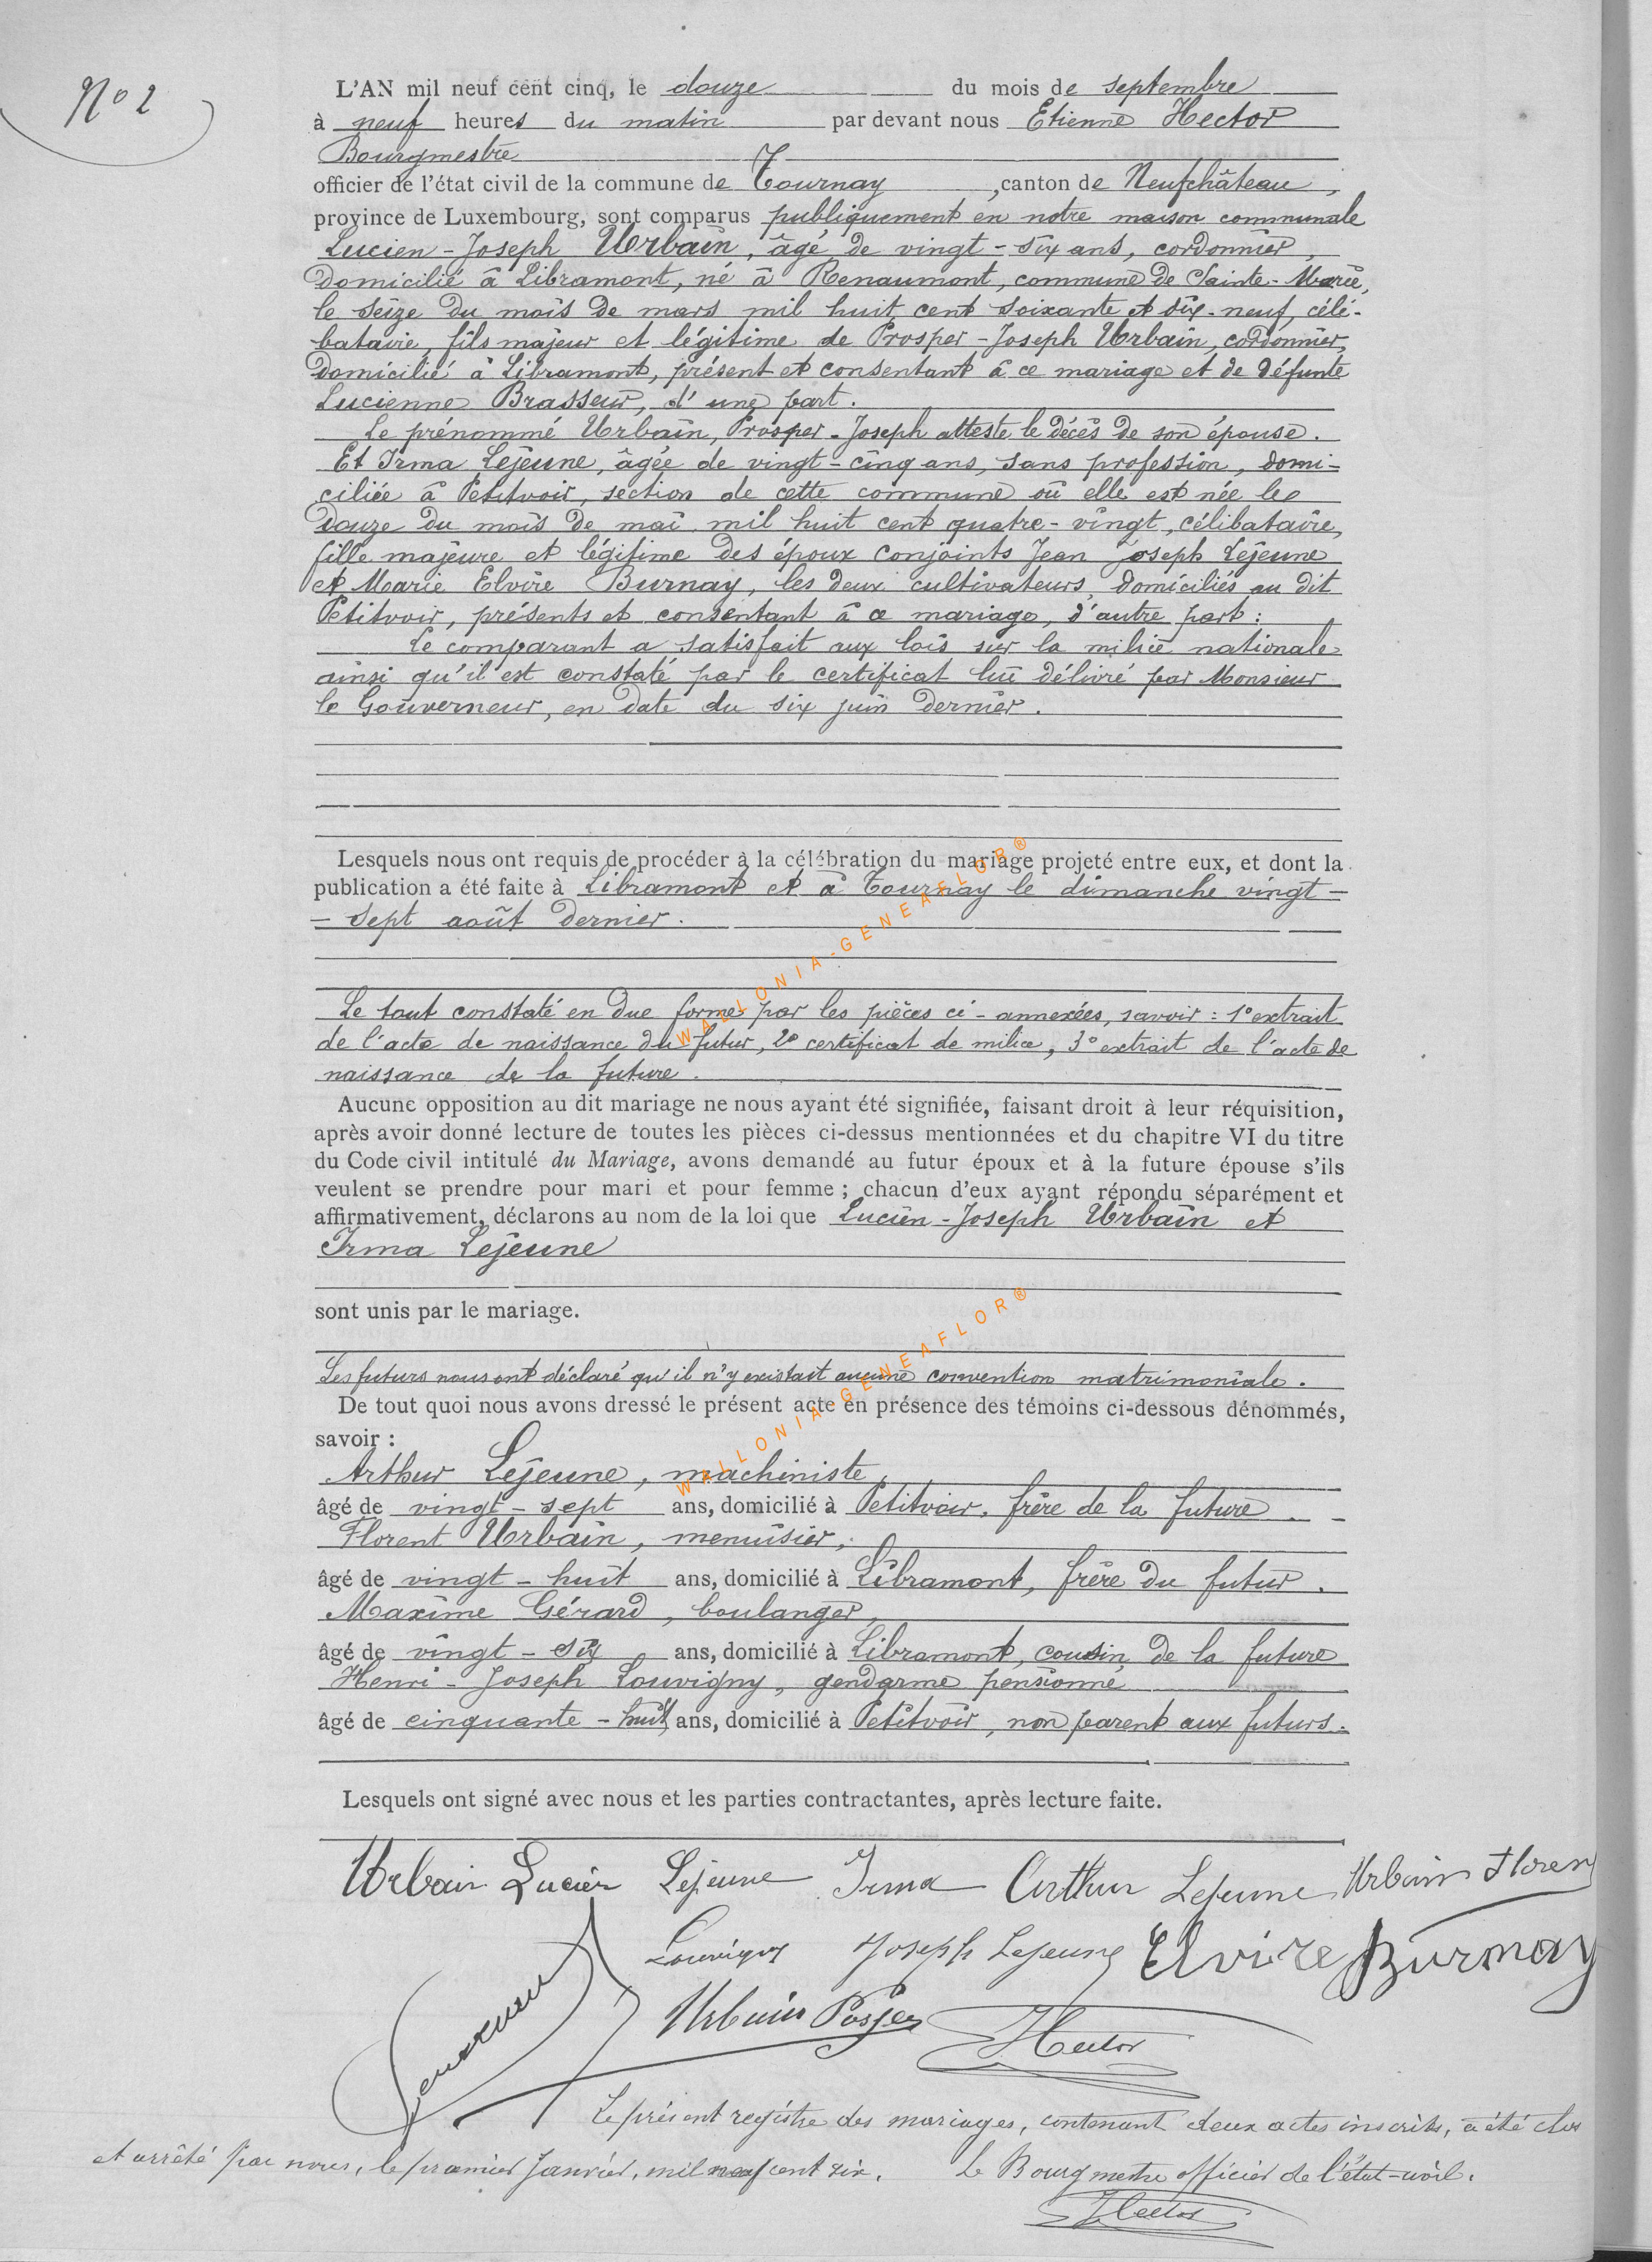 No 2
L'AN mil neuf cent cinq, le douze du mois de septembre
à neuf heures du matin par devant nous Etienne Hector
Bourgmestre
officier de l'état civil de la commune de Tournay, canton de Neufchâteau,
province de Luxembourg, sont comparus publiquement en notre maison communale
Lucien-Joseph Urbain, âgé de vingt-six ans, cordonnier,
domicilié à Libramont, né à Renaumont, commune de Sainte-Marie,
le seize du mois de mars mil huit cent soixante et dix-neuf, céli-
bataire, fils majeur et légitime de Prosper-Joseph Urbain, cordonnier,
domicilié à Libramont, présent et consentant à ce mariage et de défunte
Lucienne Brasseur, d'une part.
Le prénommé Urbain, Prosper-Joseph atteste le décès de son épouse.
Et Irma Lejeune, âgée de vingt-cinq ans, sans profession, domi-
ciliée à Petitvoir, section de cette commune où elle est née le
douze du mois de mai mil huit cent quatre-vingt, célibataire,
fille majeure et légitime des époux conjoints Jean Joseph Lejeune
et Marie Elvire Burnay, les deux cultivateurs, domiciliés au dit
Petitvoir, présents et consentant à ce mariage, d'autre part:
Le comparant a satisfait aux lois sur la milice nationale
ainsi qu'il est constaté par le certificat lui délivré par Monsieur
le Gouverneur, en date du six juin dernier.
Lesquels nous ont requis de procéder à la célébration du mariage projeté entre eux, et dont la
publication a été faite à Libramont et à Tournay le dimanche vingt-
-sept août dernier.
Le tout constaté en due forme par les pièces ci-annexées, savoir: 1° extrait
de l'acte de naissance du futur, 2° certificat de milice, 3° extrait de l'acte de
naissance de la future.
Aucune opposition au dit mariage ne nous ayant été signifiée, faisant droit à leur réquisition,
après avoir donné lecture de toutes les pièces ci-dessus mentionnées et du chapitre VI du titre
du Code civil intitulé du Mariage, avons demandé au futur époux et à la future épouse s'ils
veulent se prendre pour mari et pour femme; chacun d'eux ayant répondu séparément et
affirmativement, déclarons au nom de la loi que Lucien-Joseph Urbain et
Irma Lejeune
sont unis par le mariage.
Les futurs nous ont déclaré qu'il n'y existait aucune convention matrimoniale.
De tout quoi nous avons dressé le présent acte en présence des témoins ci-dessous dénommés,
savoir:
Arthur Lejeune, machiniste,
âgé de vingt-sept ans, domicilié à Petitvoir, frère de la future
Florent Urbain, menuisier,
âgé de vingt-huit ans, domicilié à Libramont, frère du futur.
Maxime Gérard, boulanger,
âgé de vingt-six ans, domicilié à Libramont, cousin de la future
Henri-Joseph Louvigny, gendarme pensionné
âgé de cinquante-huit ans, domicilié à Petitvoir, non parent aux futurs.
Lesquels ont signé avec nous et les parties contractantes, après lecture faite.
Urbain Lucien Lejeune Irma Arthur Lejeune Urbain Floren
Louvigny Joseph Lejeune Elvire Burnay
Urbain Posper Hector
Le présent registre des mariages, contenant deux actes inscrits, a été clos
et arrêté par nous, le premier Janvier, mil neuf cent six. Le Bourgmestre officier de l'état-civil.
Hector
WALLONIA-GENEAFLOR®
WALLONIA-GENEAFLOR®